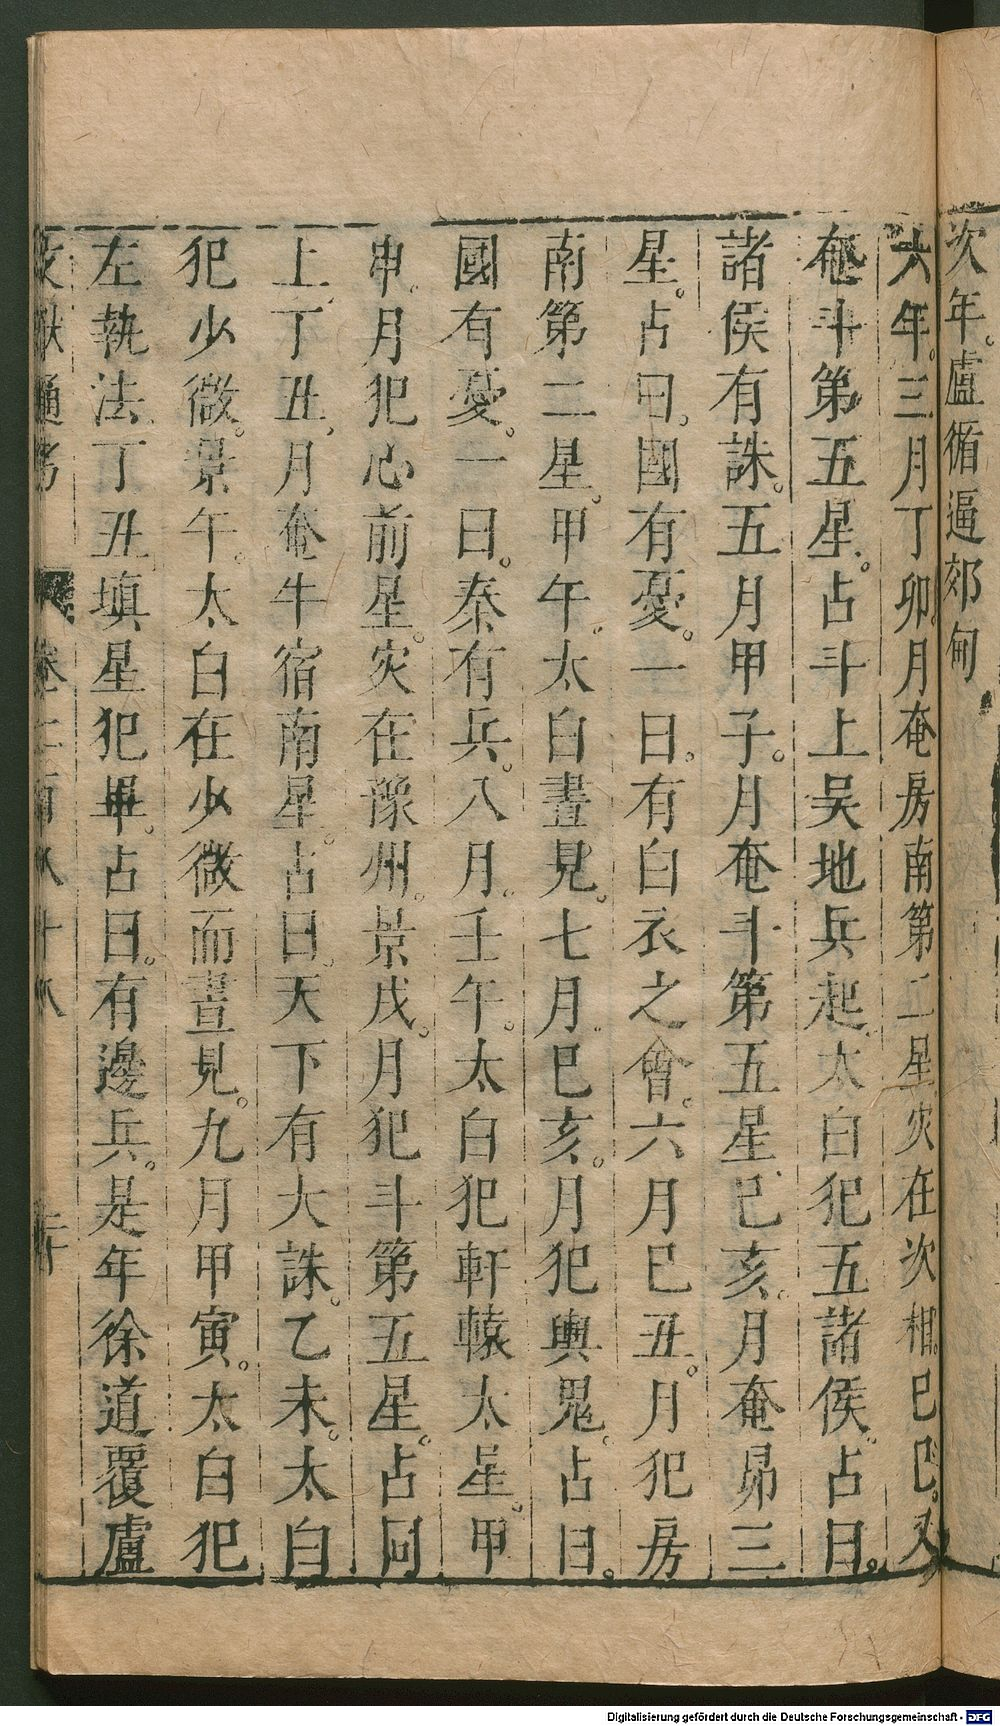 次年。盧循逼郊甸。
六年。三月丁卯。月奄房南第二星。灾在次相。巳巳。又
奄斗第五星。占斗上吴地兵起。太白犯五諸侯。占曰。
諸侯有誅。五月甲子。月奄斗第五星。巳亥。月奄昴三
星。占曰。國有憂。一曰。有白衣之會。六月巳丑。月犯房
南第二星。甲午。太白晝見。七月。巳亥。月犯輿鬼。占曰。
國有憂。一曰。秦有兵。八月。壬午。太白犯軒轅太星。甲
申。月犯心前星。灾在豫州。景戌。月犯斗第五星。占同
上。丁丑。月奄牛宿南星。占曰。天下有大誅。乙未。太白
犯少微。景午。太白在少微而晝見。九月甲寅。太白犯
左執法。丁丑填星犯畢。占曰。有邊兵。是年徐道覆盧
文獻通考 卷二百八十八
Digitalisierung gefördert durch die Deutsche Forschungsgemeinschaft - DFG